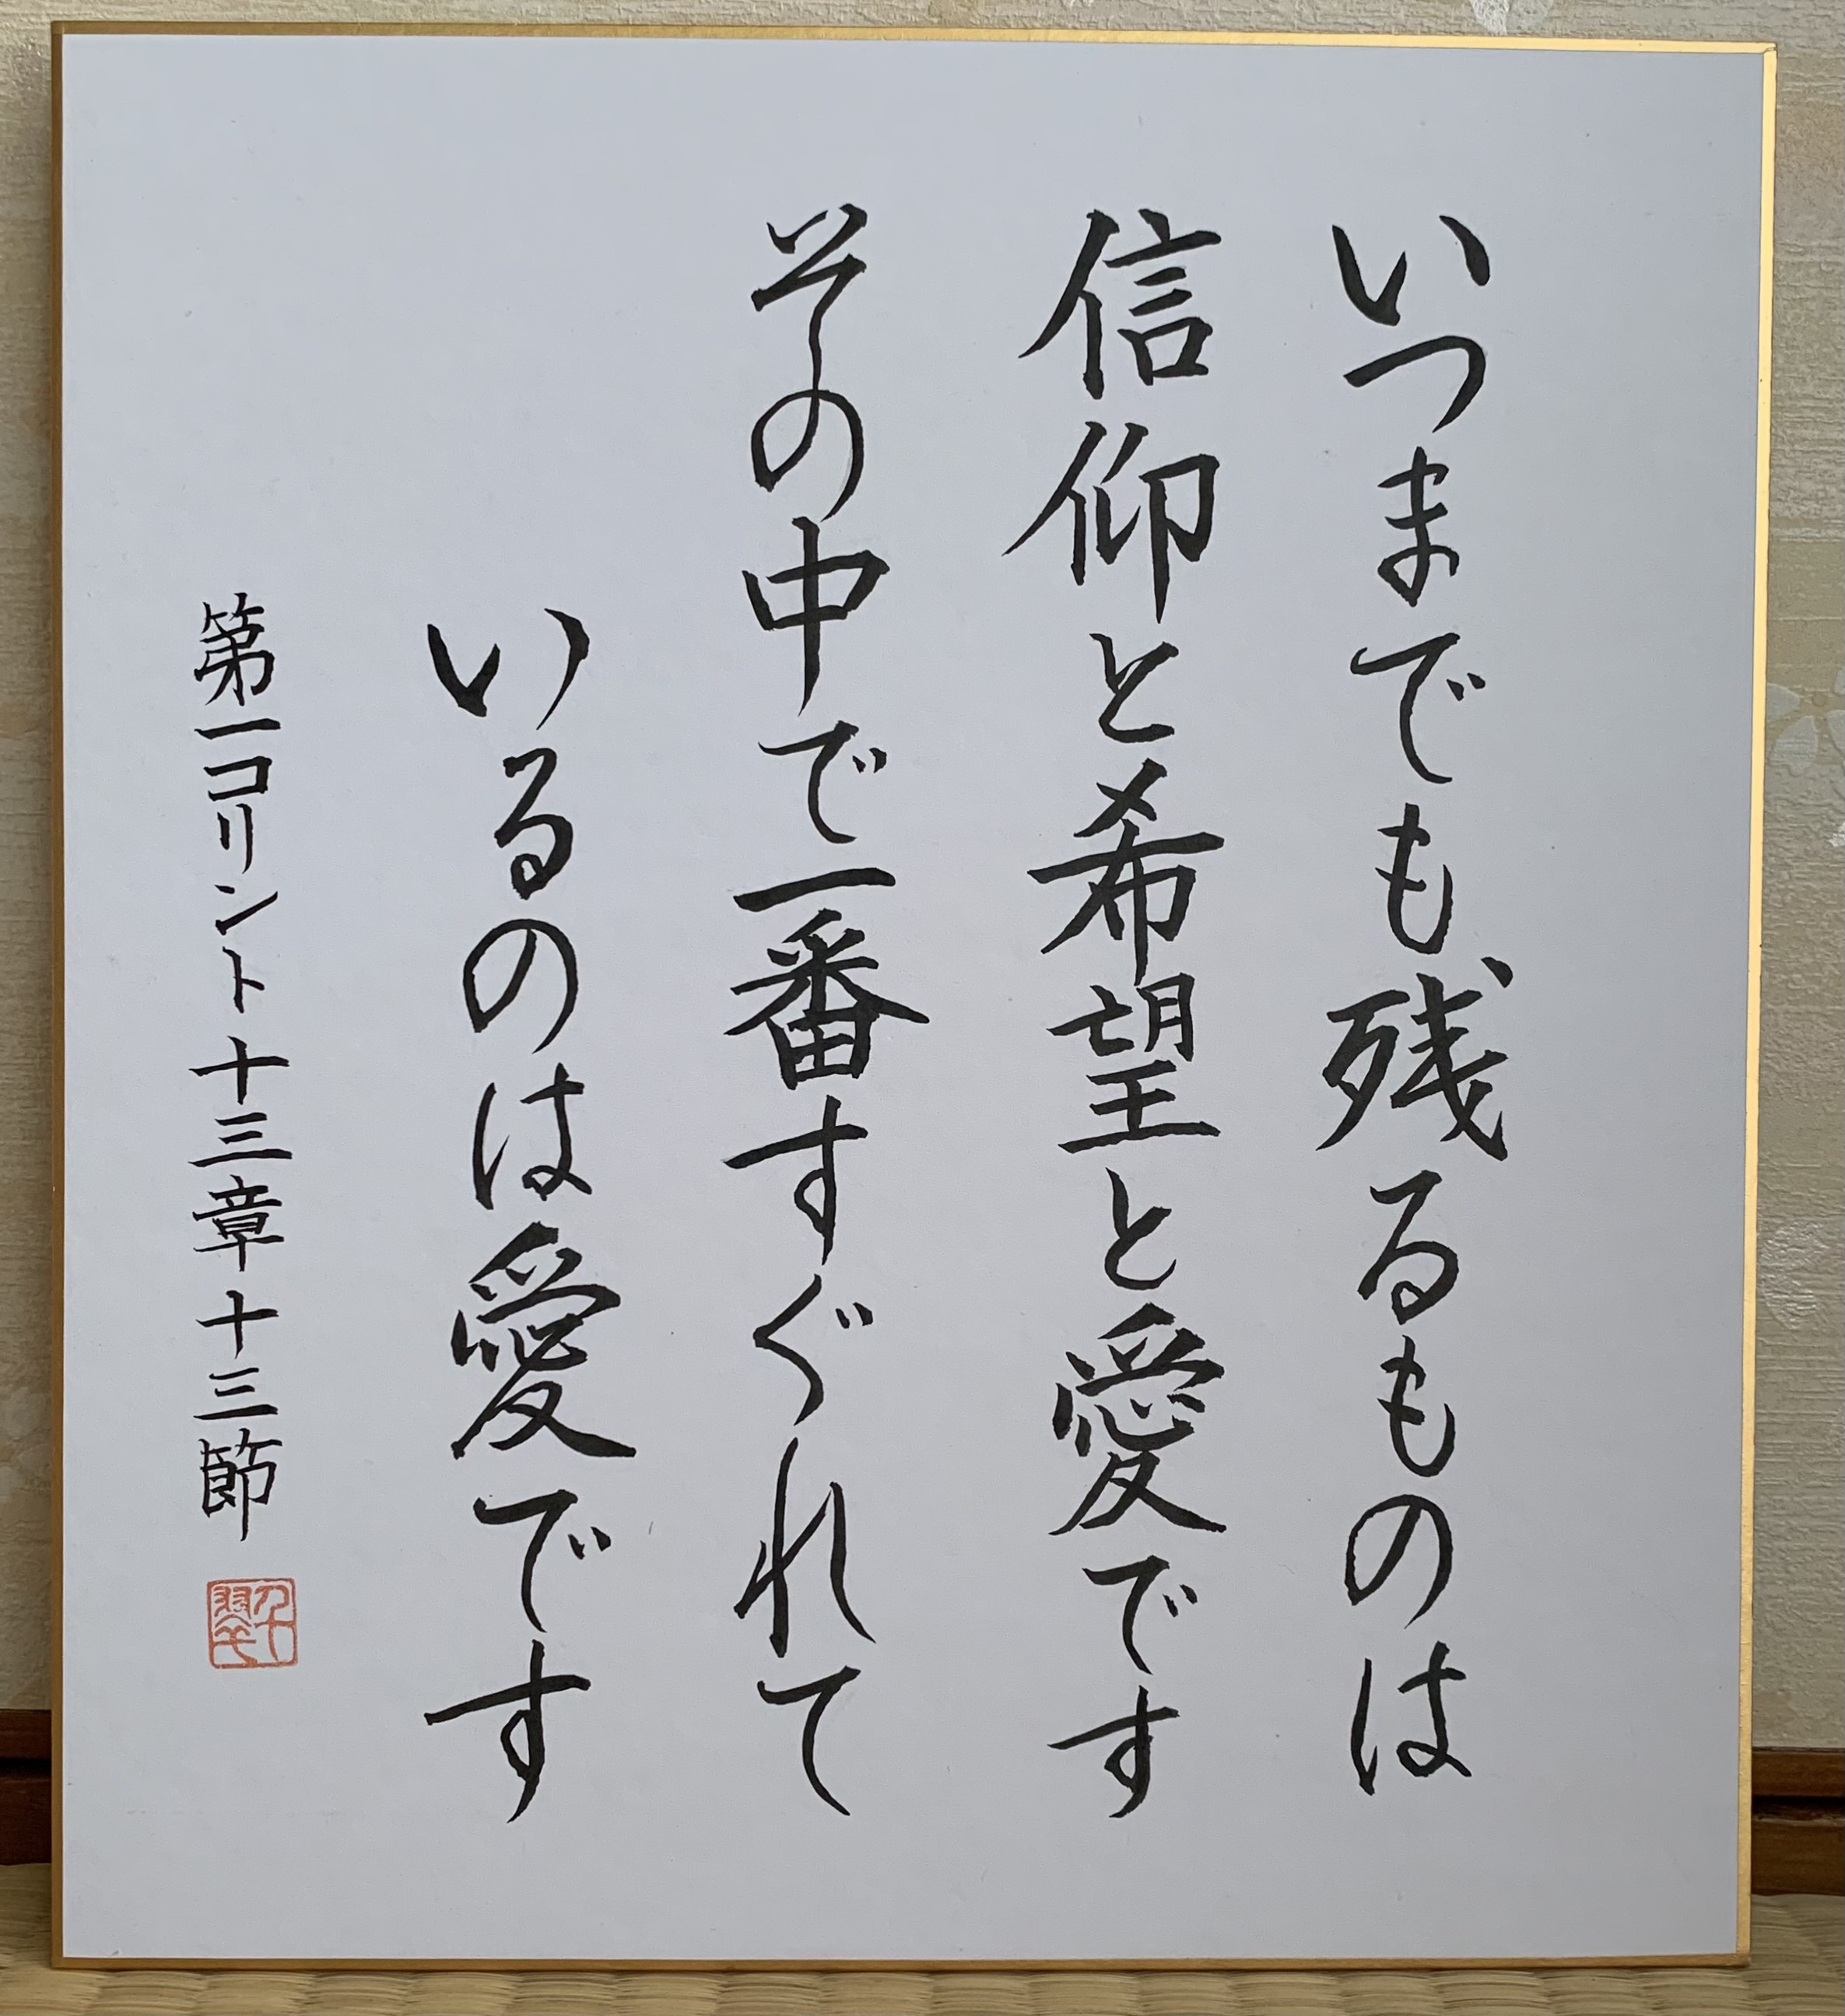 いつまでも残るものは
信仰と希望と愛です
その中で一番すぐれて
いるのは愛です
第一コリント十三章十三節